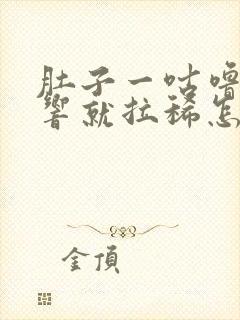 肚子一咕噜
响就拉稀怎
金頂